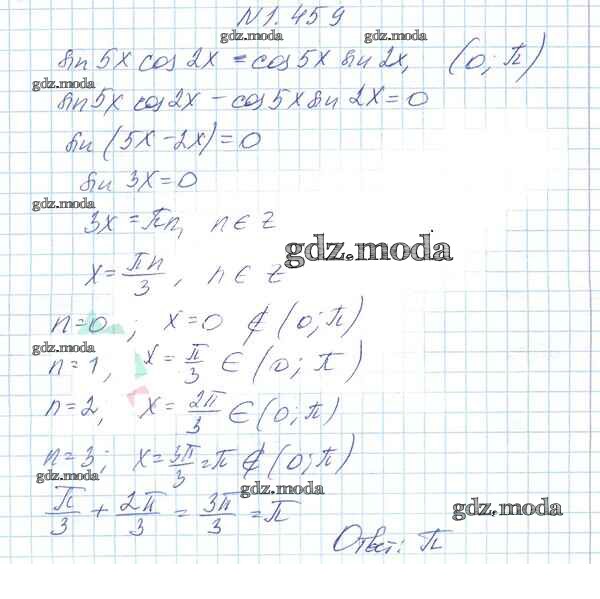 N 1.459
gdz.moda gdz.moda
sin 5x cos 2x = cos 5x sin 2x, (0; π)
gdz.moda
sin 5x cos 2x - cos 5x sin 2x = 0
sin (5x - 2x) = 0
sin 3x = 0
gdz.moda
3x = πn, n ∈ Z
gdz.moda
x = πn/3, n ∈ Z
n = 0; x = 0 ∉ (0; π)
gdz.moda
n = 1, x = π/3 ∈ (0; π)
n = 2, x = 2π/3 ∈ (0; π)
n = 3; x = 3π/3 = π ∉ (0; π)
gdz.moda gdz.moda
π/3 + 2π/3 = 3π/3 = π
gdz.moda
Ответ: π